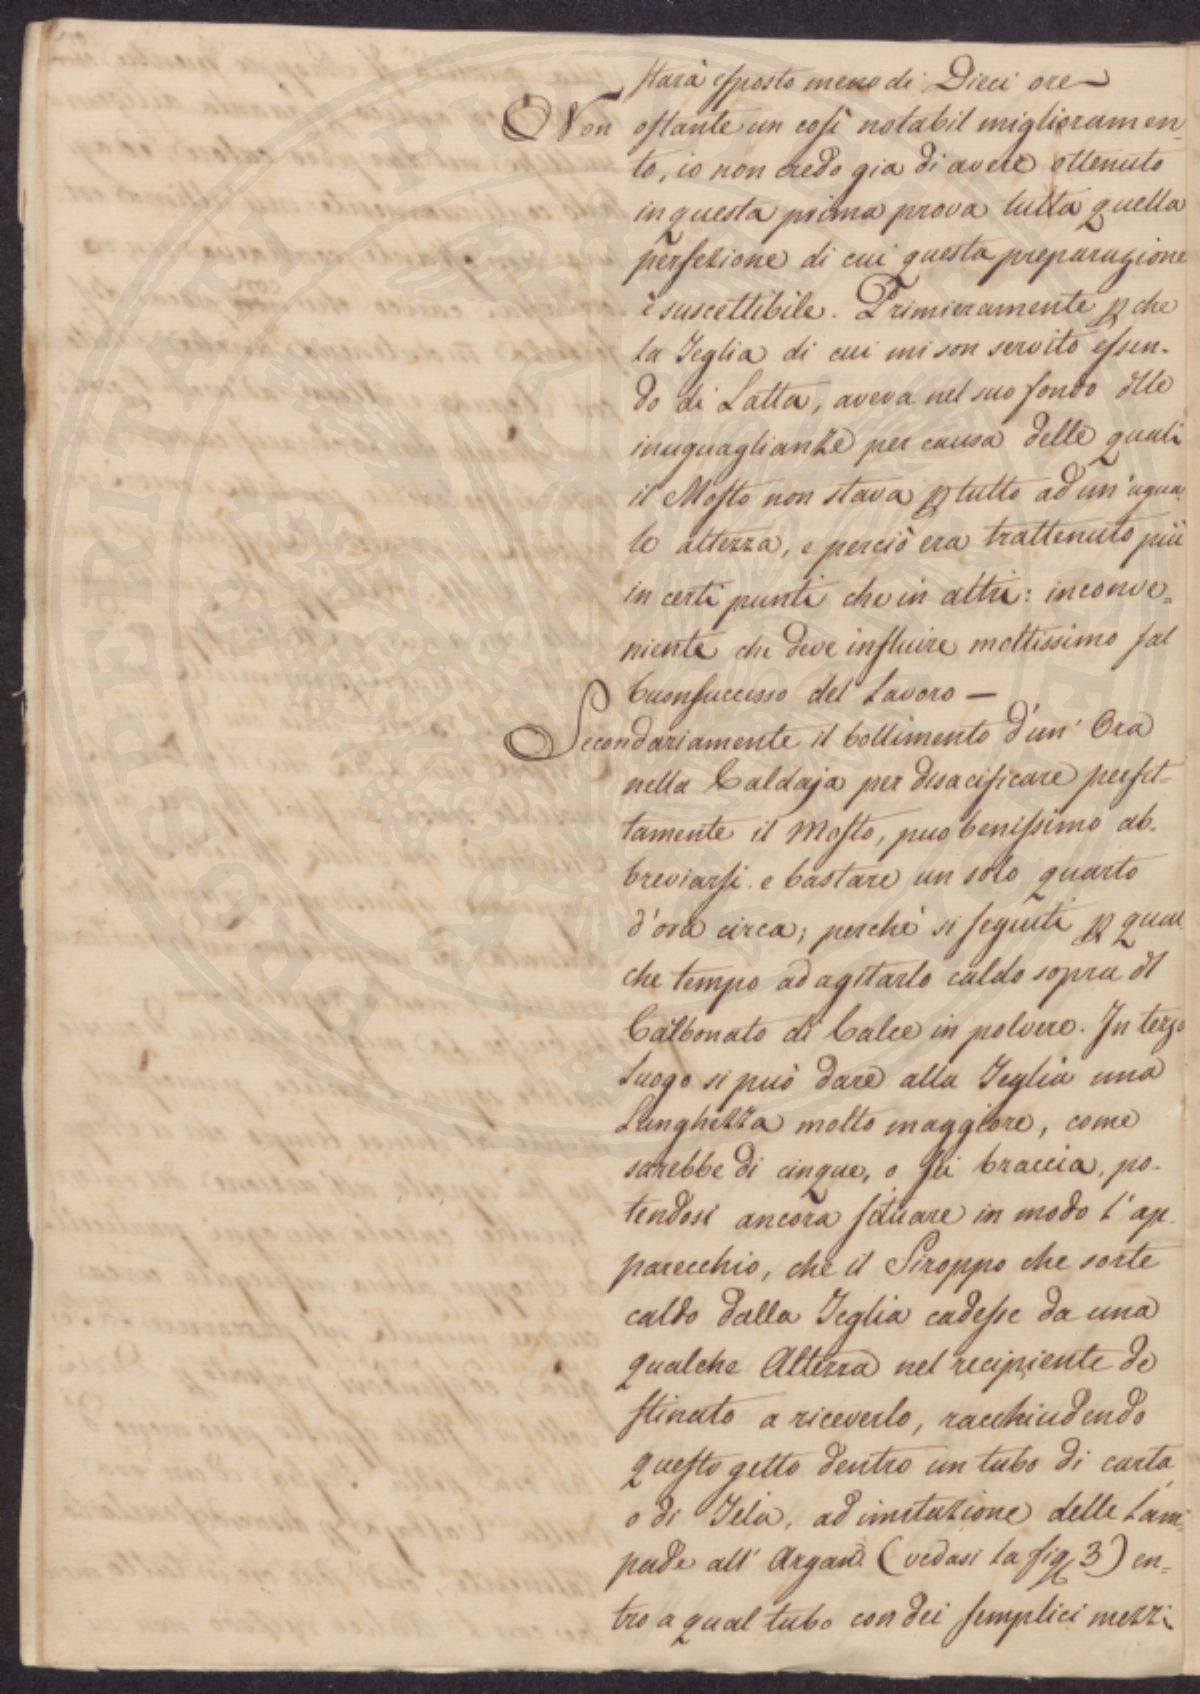 starà esposto meno di Dieci ore —
Non ostante un così notabil miglioramen-
to, io non credo gia di avere ottenuto
in questa prima prova tutta quella
perfezione di cui questa preparazione
è suscettibile. Primieramente p che
la Teglia di cui mi son servito essen-
do di Latta, aveva nel suo fondo dlle
inuguaglianze per causa delle quali
il Mosto non stava p tutto ad un'ugua-
le altezza, e perciò era trattenuto più
in certi punti che in altri: inconve-
niente che deve influire moltissimo sul
buonsuccesso del Lavoro —
Secondariamente il bollimento d'un' Ora
nella Caldaja per disacificare perfet-
tamente il Mosto, puo benissimo ab-
breviarsi e bastare un solo quarto
d'ora circa; perchè si seguiti p qual
che tempo ad agitarlo caldo sopra dl
Carbonato di Calce in polvere. In terzo
Luogo si può dare alla Teglia una
Lunghezza molto maggiore, come
sarebbe di cinque, o sei braccia, po-
tendosi ancora situare in modo l'ap-
parecchio, che il Siroppo che sorte
caldo dalla Teglia cadesse da una
qualche Altezza nel recipiente de
stinato a riceverlo, racchiudendo
questo getto dentro un tubo di carta
o di Tela, ad imitazione delle Lam-
pade all' Argand. (vedasi la fig. 3) en-
tro a qual tubo con dei semplici mezzi